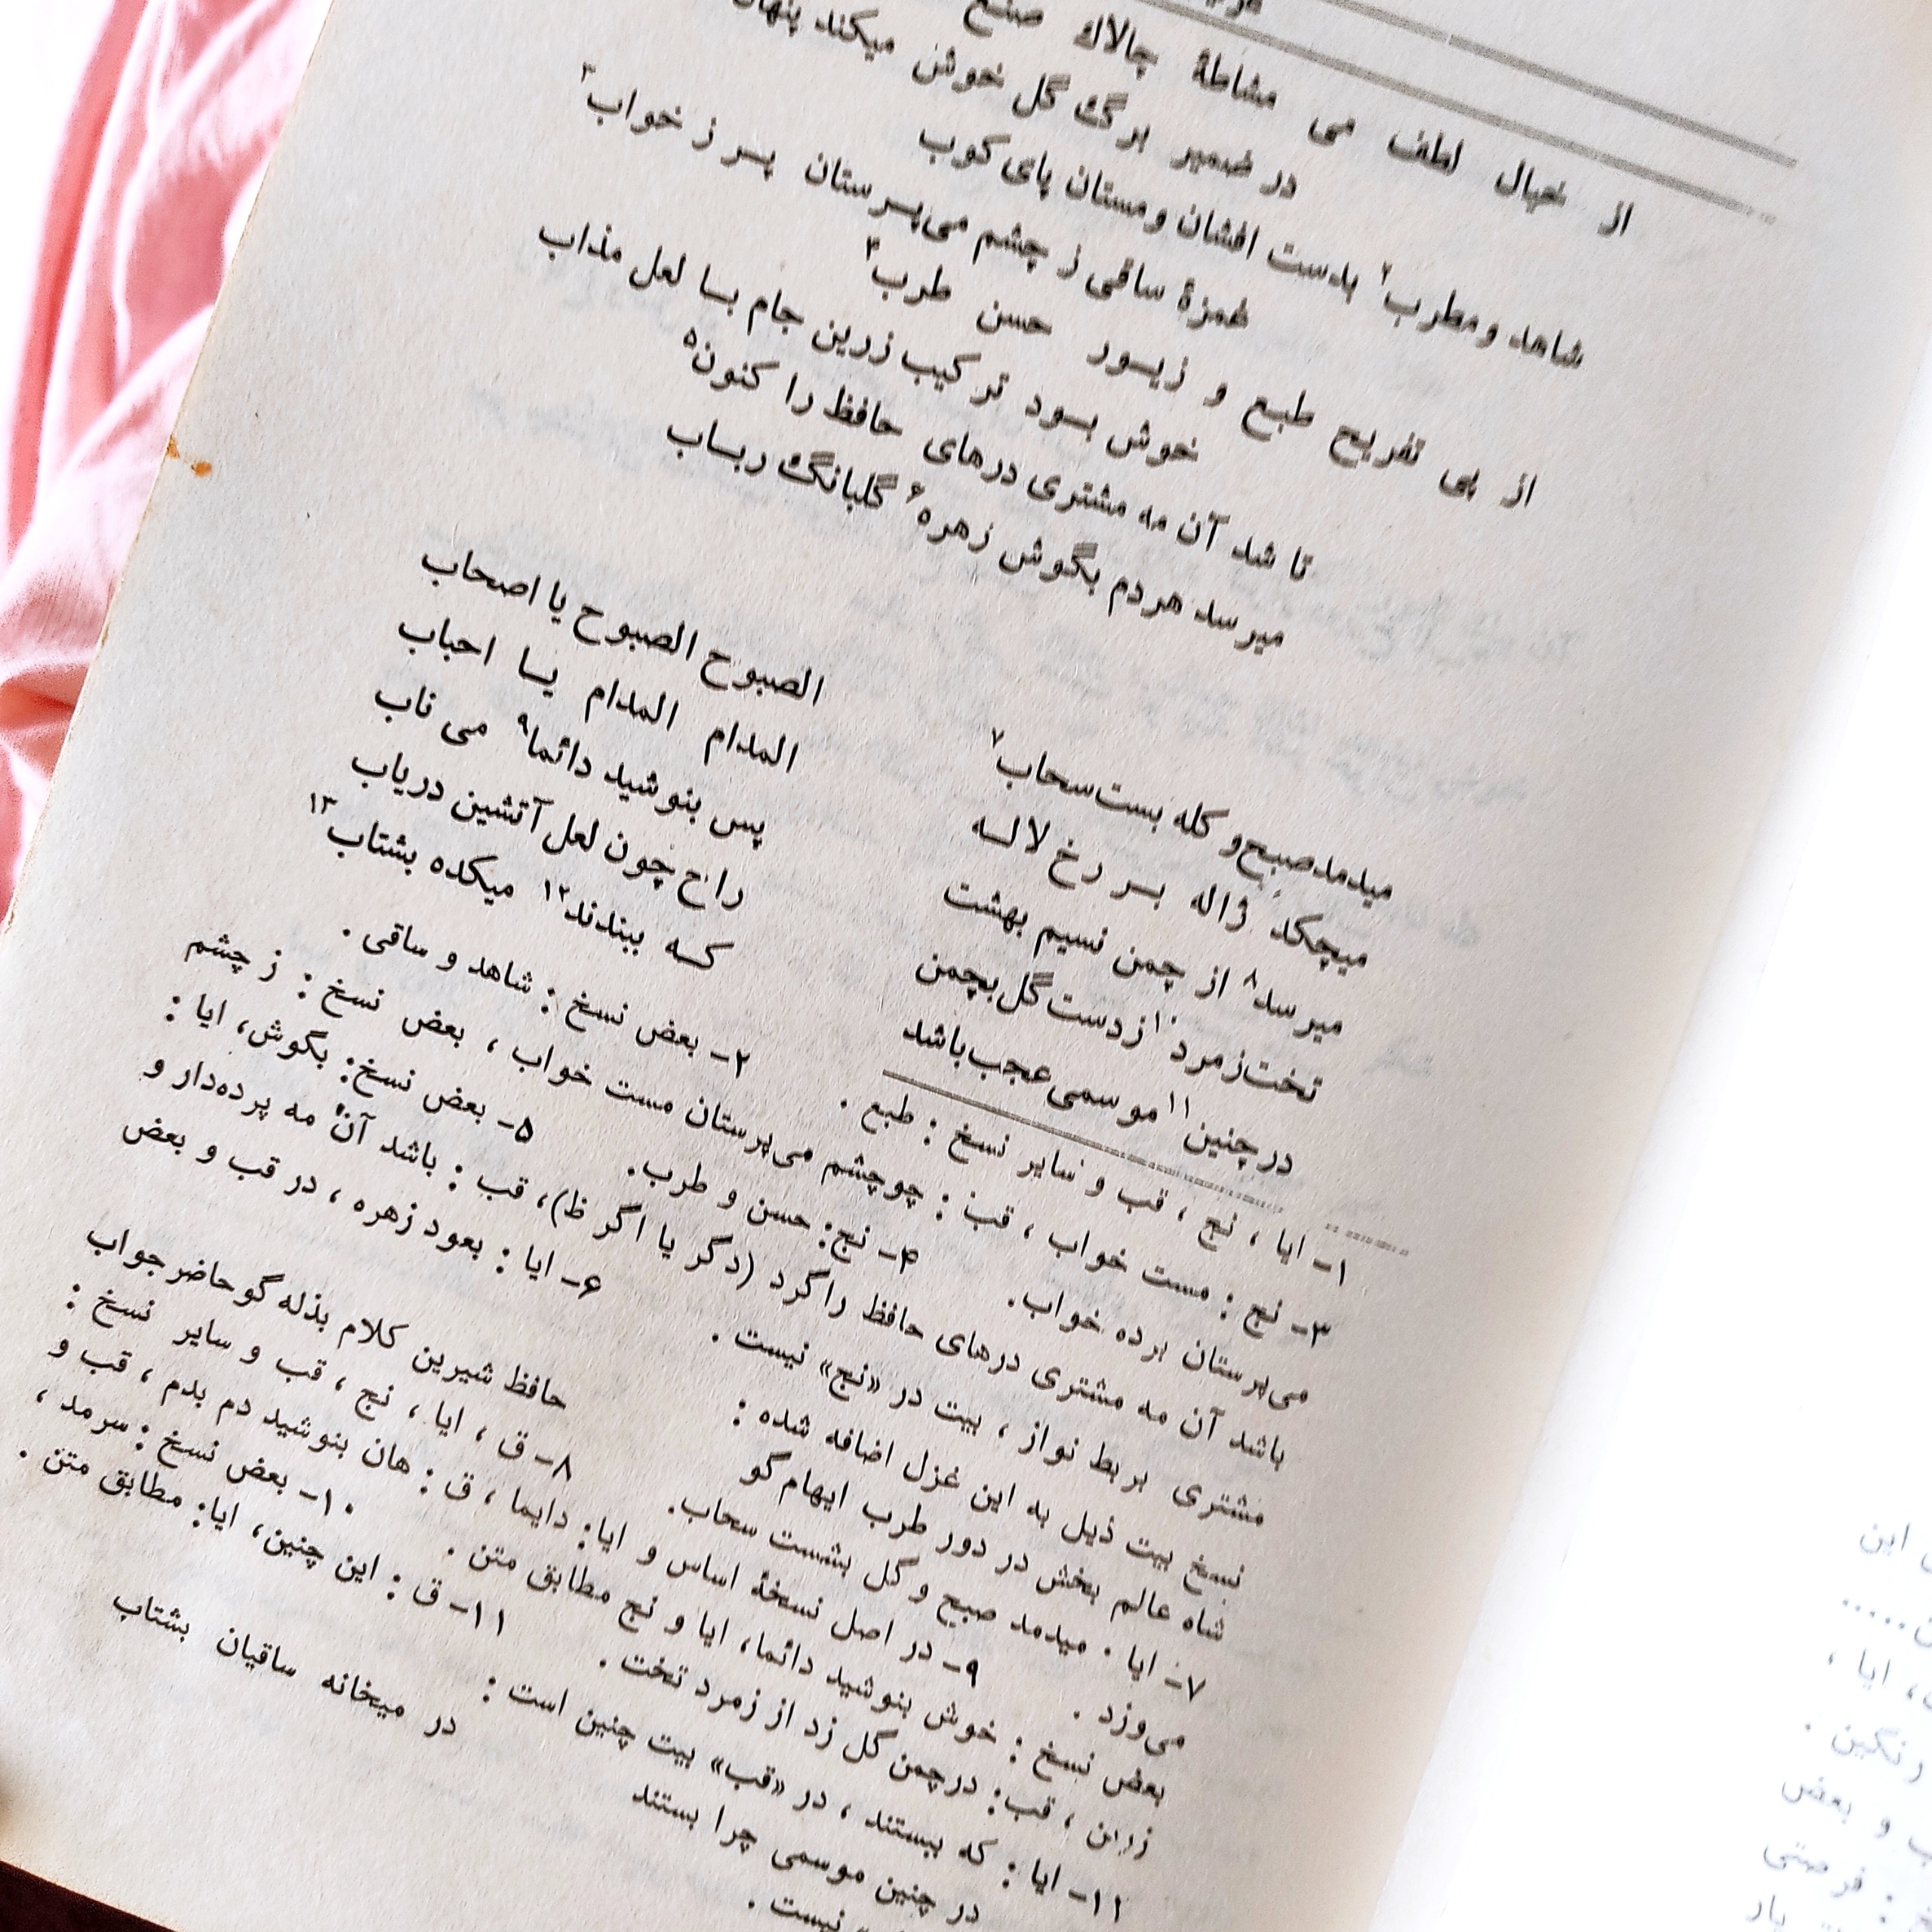 از خیال لطف می مشاطهٔ چالاک صنع
در ضمیر برگ گل خوش میکند پنهان
شاهد و مطرب۲ بدست افشان و مستان پای کوب
غمزهٔ ساقی ز چشم می‌پرستان بسر ز خواب۳
از پی تفریح طبع و زیسور حسن طرب۴
خوش بسود ترکیب زرین جام بسا لعل مذاب
تا شد آن مه مشتری درهای حافظ را کنون۵
میرسد هردم بگوش زهره۶ گلبانگ ربساب
میدمد صبح و کله بست سحاب۷
الصبوح الصبوح یا اصحاب
میچکد ژاله بسر رخ لالسه
المدام المدام یسا احباب
میرسد۸ از چمن نسیم بهشت
پس بنوشید دائما۹ می ناب
تخت زمرد۱۰ از دست گل بچمن
راح چون لعل آتشین دریاب
در چنین۱۱ موسمی عجب باشد
کسه ببندند۱۲ میکده بشتاب۱۳
۱- ایا ، نج ، قب و سایر نسخ : طبع . ۲- بعض نسخ : شاهد و ساقی .
۳- نج : مست خواب ، قب : چو چشم می‌پرستان مست خواب ، بعض نسخ : ز چشم
می‌پرستان برده خواب. ۴- نج: حسن و طرب. ۵- بعض نسخ: بگوش، ایا :
باشد آن مه مشتری درهای حافظ را گرد (دگر یا اگر ظ)، قب : باشد آن مه پرده‌دار و
مشتری بربط نواز ، بیت در «نج» نیست . ۶- ایا : بعود زهره ، در قب و بعض
نسخ بیت ذیل به این غزل اضافه شده :
شاه عالم بخش در دور طرب ایهام گو حافظ شیرین کلام بذله گو حاضر جواب
۷- ایا . میدمد صبح و کل بشست سحاب. ۸- ق ، ایا ، نج ، قب و سایر نسخ :
می‌وزد . ۹- در اصل نسخهٔ اساس و ایا: دایما ، ق : هان بنوشید دم بدم ، قب و
بعض نسخ : خوش بنوشید دائما، ایا و نج مطابق متن . ۱۰- بعض نسخ : سرمد ،
زرین ، قب: درچمن گل زد از زمرد تخت . ۱۱- ق : این چنین، ایا: مطابق متن .
۱۱- ایا : که ببستند ، در «قب» بیت چنین است :
در چنین موسمی چرا بستند در میخانه ساقیان بشتاب
نیست .
این
ایا ،
رنگین .
و بعض
فرصتی
یار